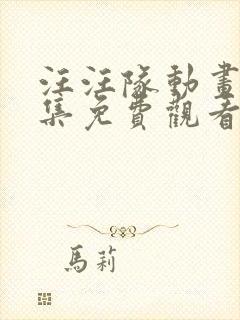 汪汪隊動畫
集免費觀看
馬莉